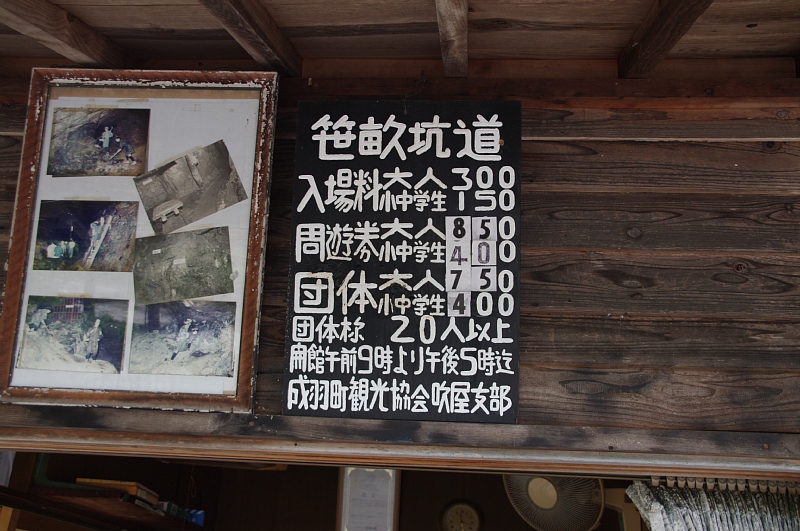 笹畝坑道
入場料 大人 300
小中学生 150
周遊券 大人 850
小中学生 400
団体 大人 750
小中学生 400
団体様 20人以上
開館午前9時より午後5時迄
成羽町観光協会吹屋支部